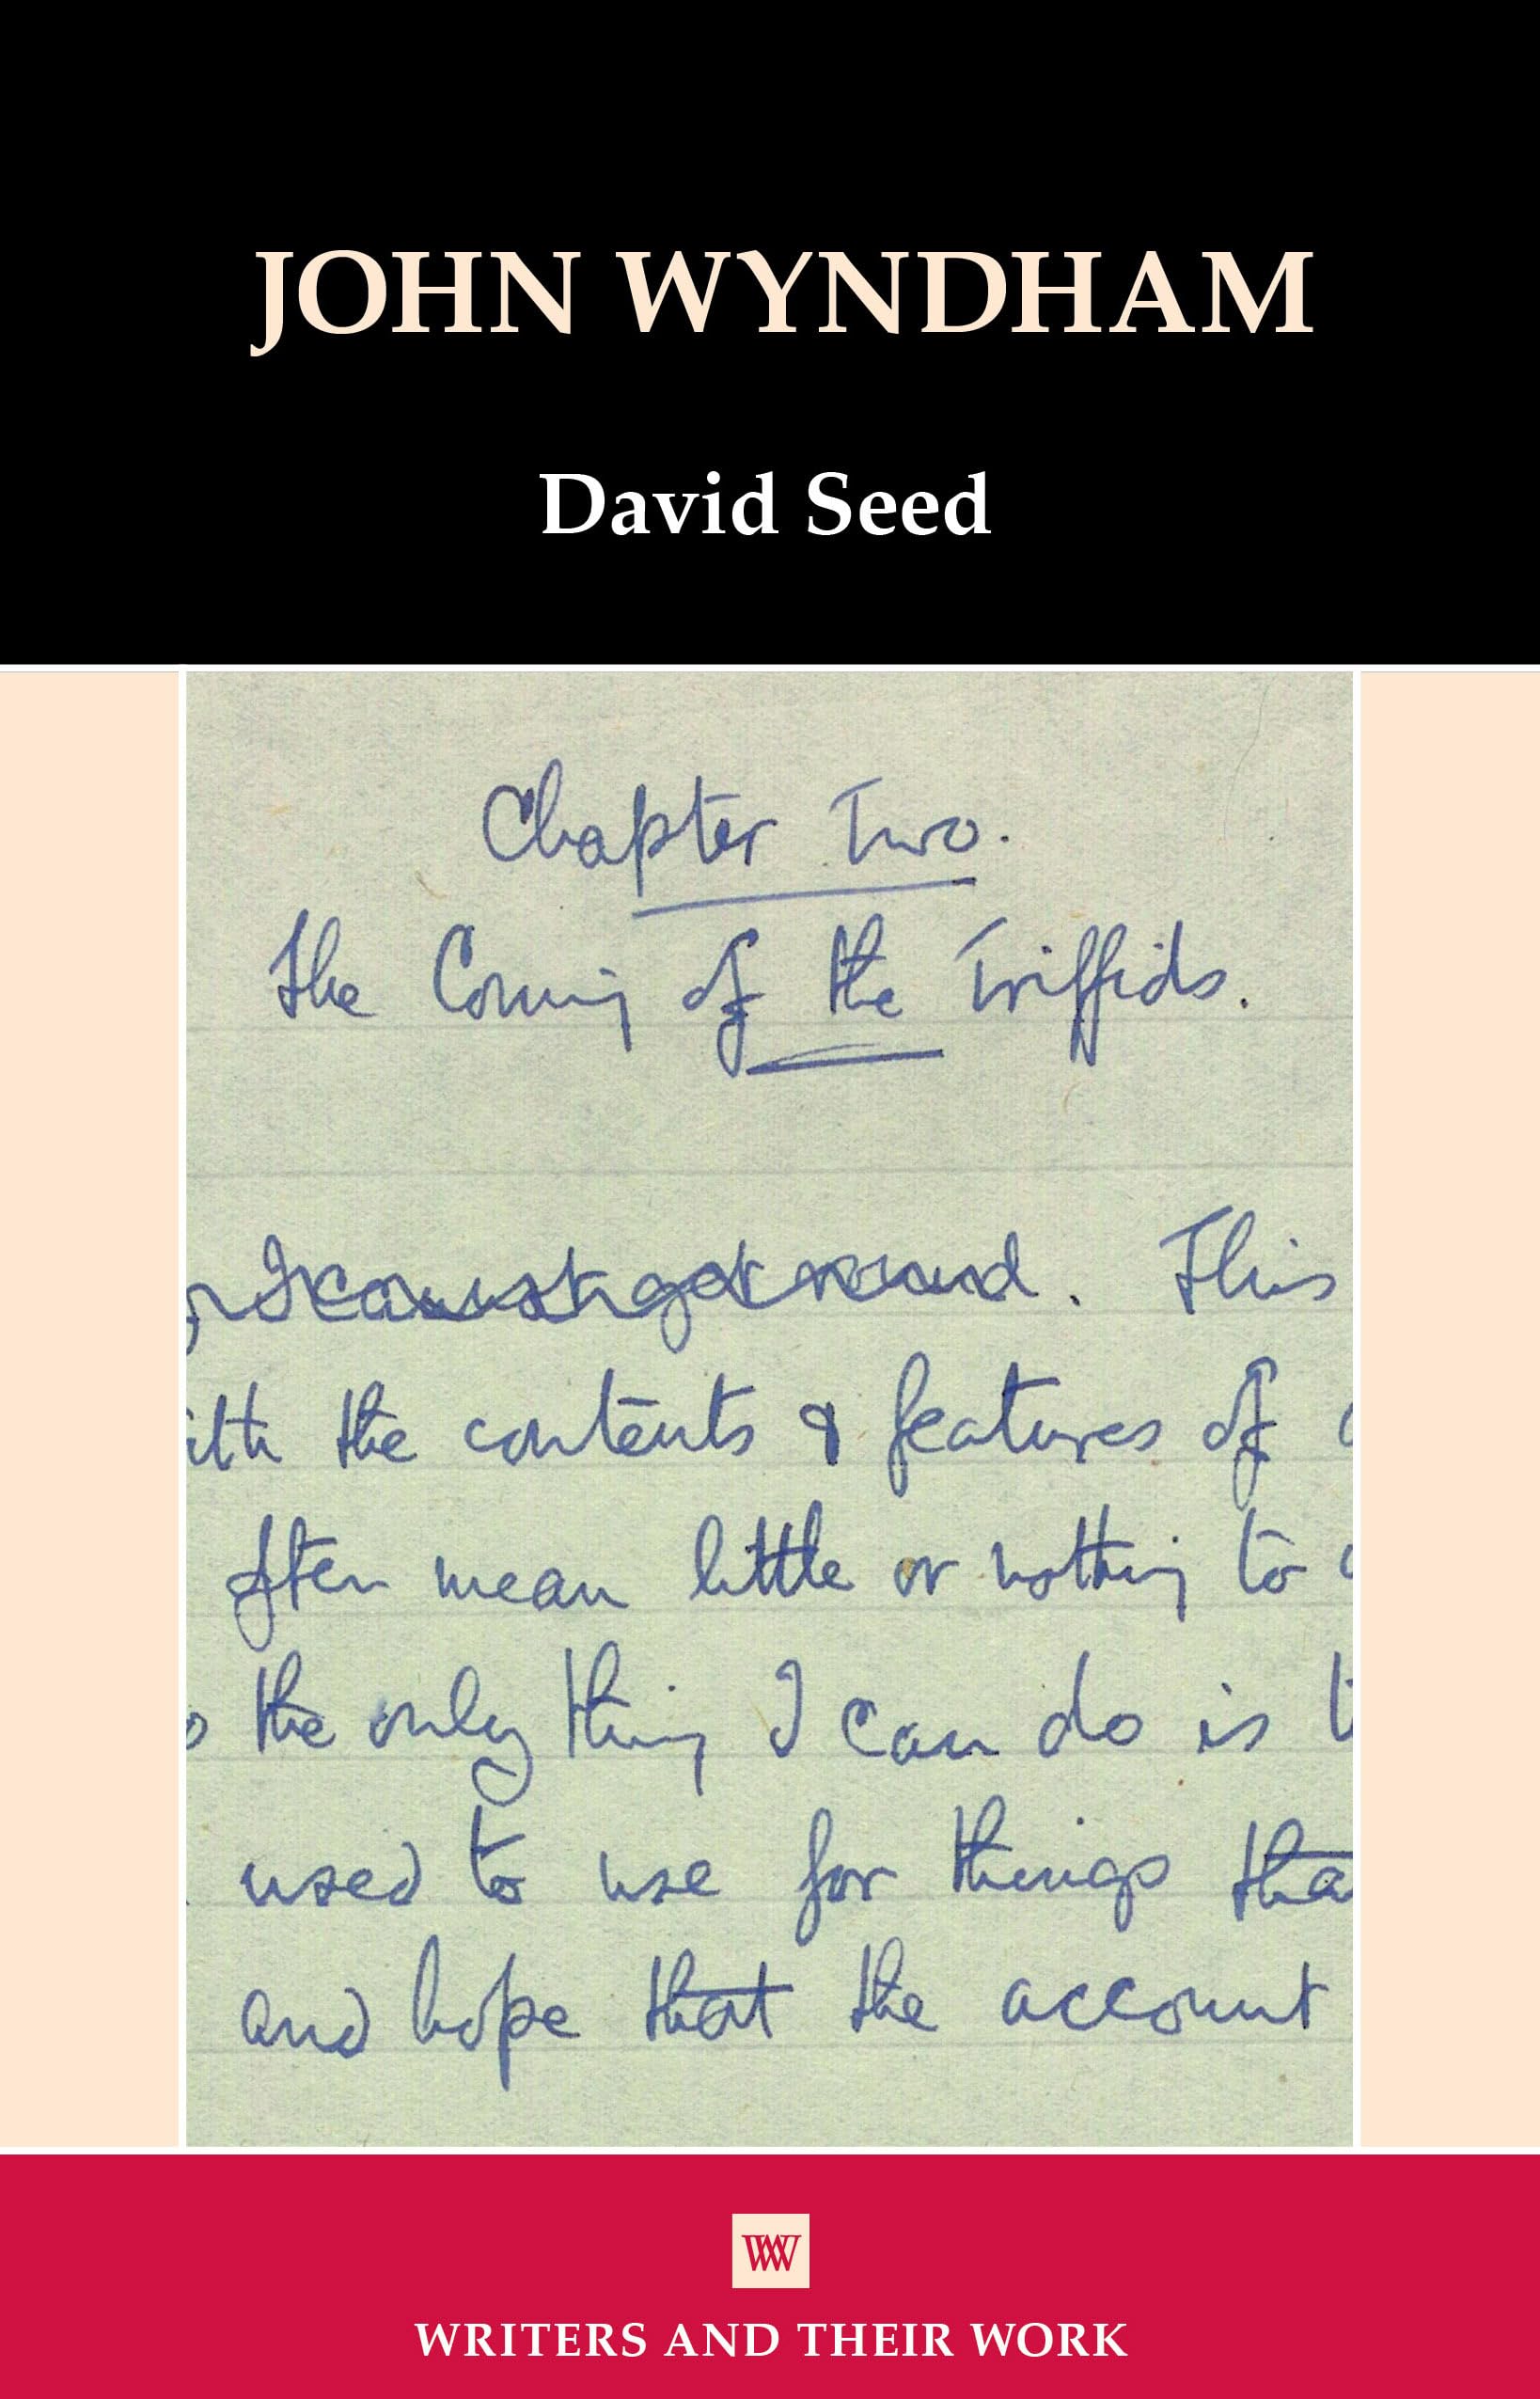 JOHN WYNDHAM
David Seed
Chapter Two.
The Coming of the Triffids.
. This
ith the contents & features of
often mean little or nothing to
the only thing I can do is t
used to use for things tha
and hope that the account
W
WRITERS AND THEIR WORK